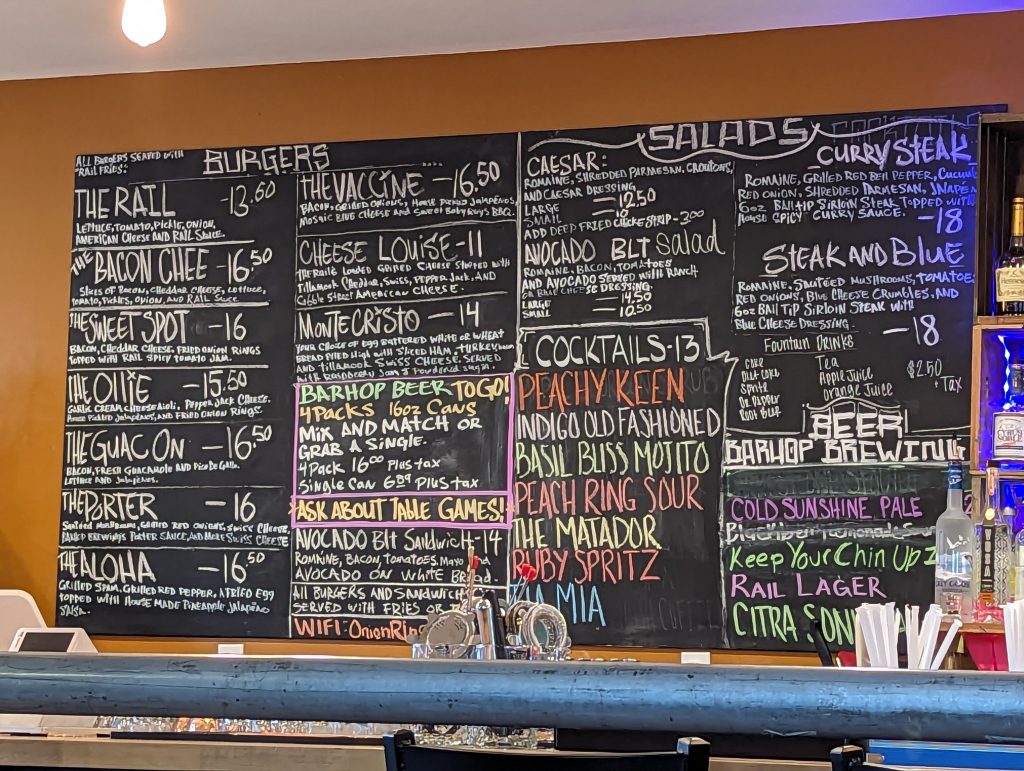 ALL BURGERS SERVED WITH
"RAIL FRIES".
BURGERS
THE RAIL -13.50
LETTUCE, TOMATO, PICKLE, ONION,
AMERICAN CHEESE AND RAIL SAUCE.
THE BACON CHEE -16.50
SLICES OF BACON, CHEDDAR CHEESE, LETTUCE,
TOMATO, PICKLES, ONION, AND RAIL SAUCE
THE SWEET SPOT -16
BACON, CHEDDAR CHEESE, FRIED ONION RINGS
TOPPED WITH RAIL SPICY TOMATO JAM.
THE OLIE -15.50
GARLIC CREAM CHEESE AIOLI, PEPPER JACK CHEESE,
HOUSE PICKLED JALAPEÑOS, AND FRIED ONION RINGS.
THE GUAC ON -16.50
BACON, FRESH GUACAMOLE AND PICO DE GALLO.
LETTUCE AND JALAPENOS.
THE PORTER -16
SAUTEED MUSHROOMS, GRILLED RED ONIONS, SWISS CHEESE,
BREWING'S PORTER SAUCE, AND MORE SWISS CHEESE
THE ALOHA -16.50
GRILLED SPAM, GRILLED RED PEPPER, A FRIED EGG
TOPPED WITH HOUSE MADE PINEAPPLE JALAPEÑO
SALSA.
THE VACCINE -16.50
BACON, GRILLED ONIONS, HOUSE PICKLED JALAPEÑOS,
MOSAIC BLUE CHEESE AND SWEET BABY RAY'S BBQ.
CHEESE LOUISE -11
THE RAILS LOADED GRILLED CHEESE STUFFED WITH
TILLAMOOK CHEDDAR, SWISS, PEPPER JACK, AND
GIBBLE STREET AMERICAN CHEESE.
MONTE CRISTO -14
YOUR CHOICE OF EGG BATTERED WHITE OR WHEAT
BREAD PILED HIGH WITH SLICED HAM, TURKEY
AND TILLAMOOK SWISS CHEESE. SERVED
WITH RASPBERRY JAM & POWDERED SUGAR.
BARHOP BEER TO GO!
4 PACKS 16oz CANS
MIX AND MATCH OR
GRAB A SINGLE.
4 PACK 16.00 PLUS TAX
SINGLE CAN 6.09 PLUS TAX
ASK ABOUT TABLE GAMES!
AVOCADO BLT SANDWICH-14
ROMAINE, BACON, TOMATOES, MAYO
AVOCADO ON WHITE BREAD
ALL BURGERS AND SANDWICH
SERVED WITH FRIES OR
WIFI: OnionRin
SALADS
CAESAR:
ROMAINE, SHREDDED PARMESAN, CROUTONS,
AND CAESAR DRESSING
LARGE -12.50
SMALL -10
ADD DEEP FRIED CHICKE STRIP -3.00
AVOCADO BLT SALAD
ROMAINE, BACON, TOMATOES
AND AVOCADO SERVED WITH RANCH
OR BLUE CHEESE DRESSING.
LARGE -14.50
SMALL -10.50
COCKTAILS-13
PEACHY KEEN
INDIGO OLD FASHIONED
BASIL BLISS MOJITO
PEACH RING SOUR
THE MATADOR
RUBY SPRITZ
MIA
CURRY STEAK
ROMAINE, GRILLED RED BELL PEPPER, CUCUM
RED ONION, SHREDDED PARMESAN, JALAPEÑ
6oz BALL TIP SIRLOIN STEAK TOPPED WITH
HOUSE SPICY CURRY SAUCE. -18
STEAK AND BLUE
ROMAINE, SAUTÉED MUSHROOMS, TOMATOE
RED ONIONS, BLUE CHEESE CRUMBLES, AND
6oz BALL TIP SIRLOIN STEAK WITH
BLUE CHEESE DRESSING. -18
FOUNTAIN DRINKS
COKE
DIET COKE
SPRITE
DR PEPPER
ROOT BEER
TEA
APPLE JUICE
ORANGE JUICE
$2.50
+TAX
BEER
BARHOP BREWING
COLD SUNSHINE PALE
KEEP YOUR CHIN UP
RAIL LAGER
CITRA
Hennessy
VODKA